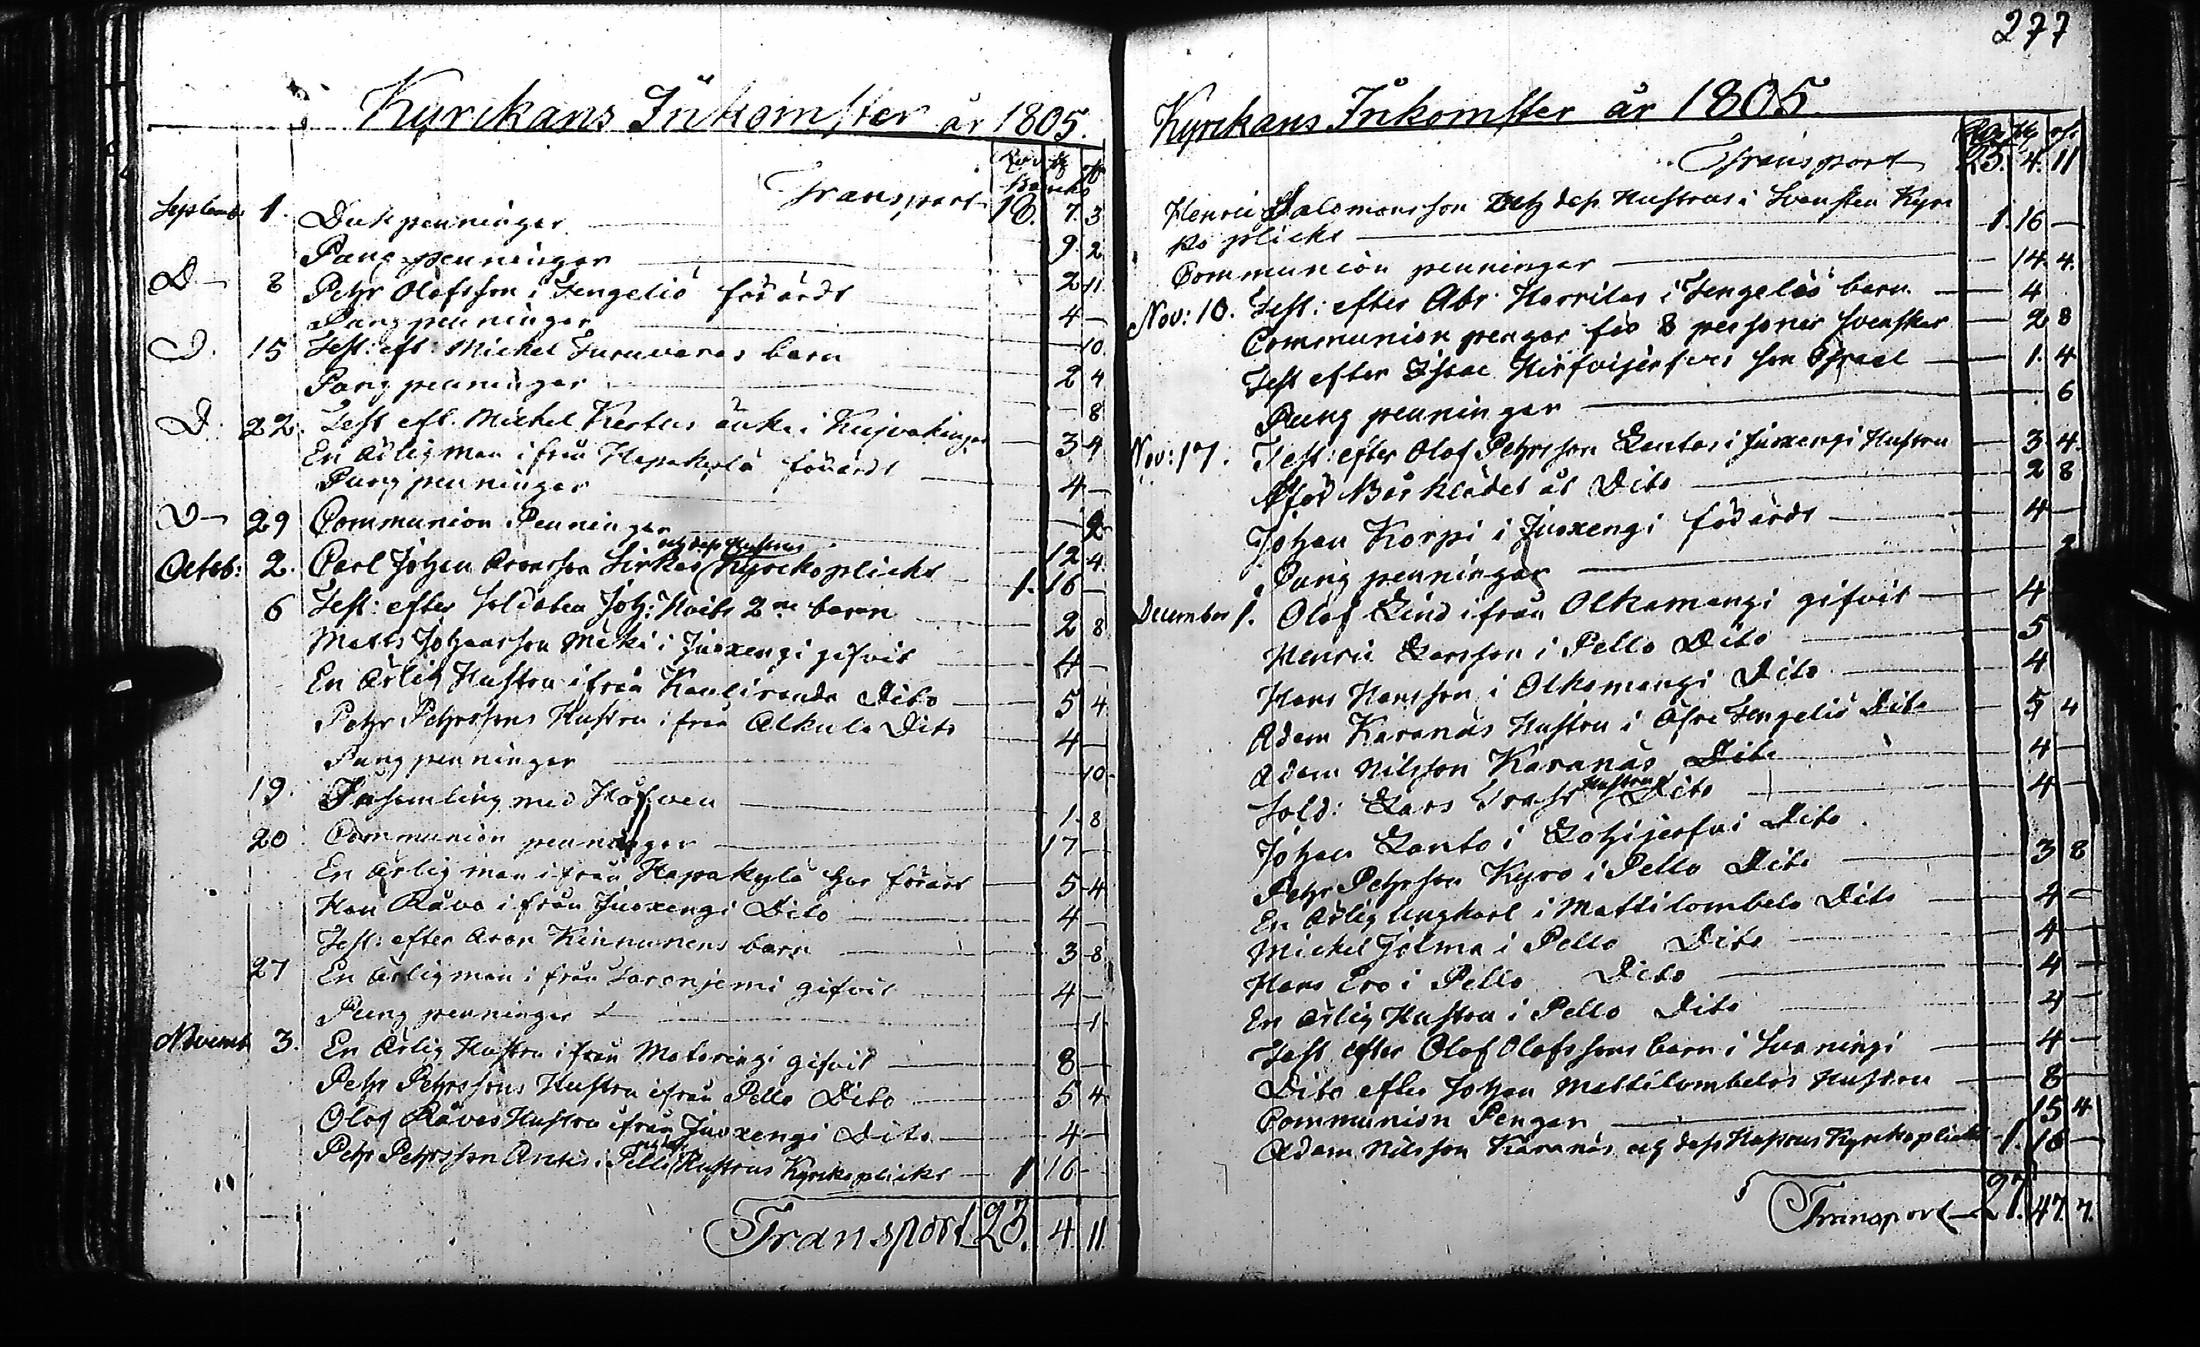 Kyrckans Inkomster år 1805.
Rdr ß rst
Banko
Transport 18. 7. 3
Septemb: 1. Duk penningar
Pung penningar 9. 2
D 8 Pehr Olofsson i Tengeliö förärdt 2 11
Pung penningar 4 —
D. 15 Test: eft: Michel Turuvaras barn 10
Pung penningar 2 4
D. 22. Test eft. Michel Kertus änka i 8
En Ärlig man ifrån Hapakylä förärdt 3 4
Pung penningar 4 —
D 29 Communion Penningar 2
Octob: 2. Carl Johan Aronsson Sirkas och dess Hustrus Kyrckoplickt 12 4
1. 16 —
6 Test: efter Soldaten Joh: 2ne barn 2 8
Matts Johansson Mäki i Juoxengi gifvit 4 —
En Ärlig Hustru ifrån Kauliranda Dito 5 4
Pehr Pehrssons Hustru ifrån Alkula Dito 4 —
Pung penningar 10
19. Insamling med Håfven 1. 8
20 Communion penningar 17 —
En Ärlig man ifrån Hapakylä har förärt 5 4
Han Räva ifrån Juoxengi Dito 4 —
Test: efter Aron Kinnunens barn 3 8
27 En Ärlig man ifrån Saronjemi gifvit 4 —
Pung penningar 1
Novemb 3. En Ärlig Hustru ifrån Matarengi gifvit 8 —
Pehr Pehrssons Hustru ifrån Pello Dito 5 4
Olof Rävas Hustru ifrån Juoxengi Dito 4 —
Pehr Pehrsson Antis i Pello och dess Hustrus Kyrckoplickt 1 16 —
Transport 23. 4 11
277
Kyrckans Inkomster år 1805.
Rdr ß rst
Transport 23. 4. 11
Henric Salomonsson och dess Hustrus i Svensten Kyrc
ko plickt 1. 16 —
Communion penningar 14. 4.
Nov: 10. Test: efter Abr: Horrilas i Tengeliö barn 4
Communion pengar för 8 personer svenskar 2 8
Test efter Isac Hirfvijerfvis son Israel 1. 4
Pung penningar 6
Nov: 17. Test: efter Olof Pehrsson Lantas i Juoxengi Hustru 3. 4.
för Bårklädet åt Dito 2 8
Johan Korpi i Juoxengi förärdt 4 —
Pung penningar
December 1. Olof Lind ifrån Olkamangi gifvit 4
Henric Larsson i Pello Dito 5
Hans Hansson i Olkamangi Dito 4
Adam Karanäs Hustru i Öfre Tengeliö Dito 5 4
Adam Nilsson Karanäs Dito 4 —
Sold: Lars Hustru Dito 4 —
Johan Lanto i Lohijerfvi Dito
Pehr Pehrson Kyrö i Pello Dito 3 8
En Ärlig Ungkarl i Mattilombelo Dito 4 —
Michel Jolma i Pello Dito 4 —
Hans Ero i Pello Dito 4 —
En Ärlig Hustru i Pello Dito 4 —
Test efter Olof Olofssons barn i Svaningi 4 —
Dito efter Johan Mattilombelos Hustru 8 —
Communion Pengar 15 4
Adam Nilsson Karanäs och dess Hustrus Kyrckoplickt 1. 16 —
Transport 27. 47. 7.